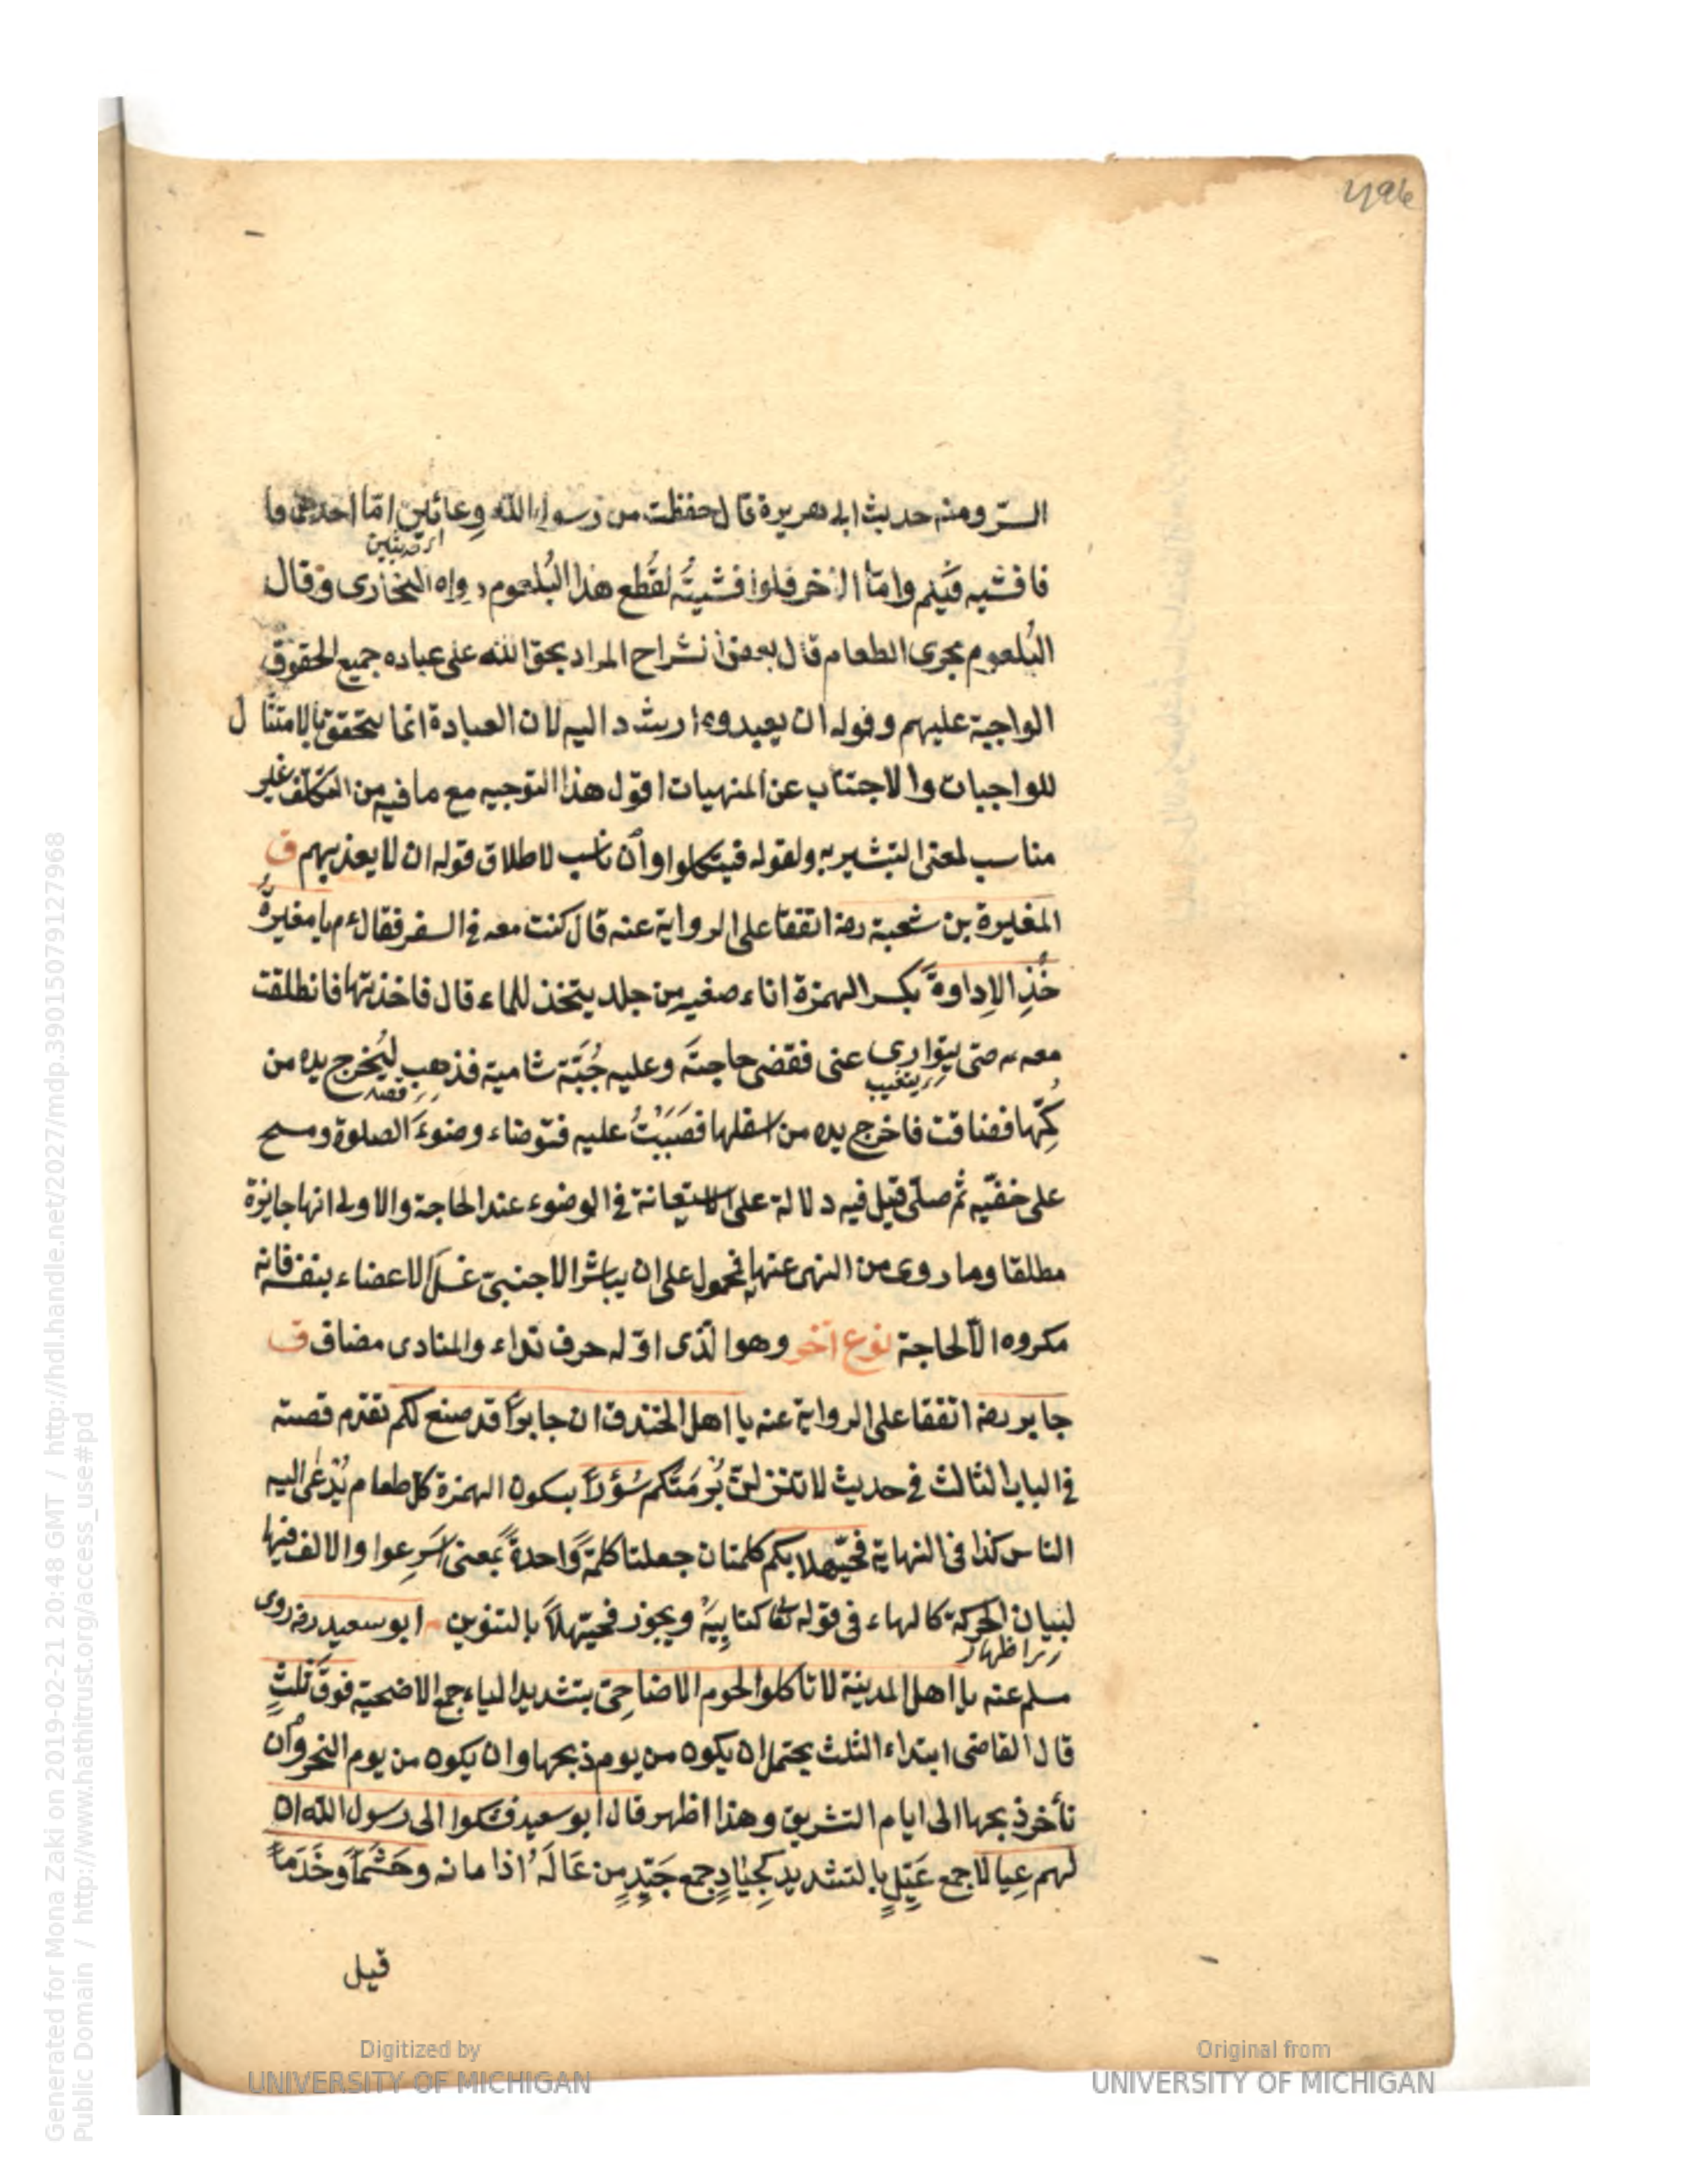 السرّ ومنه حديث ابى هريرة قال حفظت من رسول الله وعائين امّا احدهما فا
اى حديثين
فافشيه فيكم وامّا الآخر فلو افشيتُه لقُطع هذا البُلعوم رواه البخارى وقال
البُلعوم مجرى الطعام قال بعض الشراح المراد بحق الله على عباده جميع الحقوق
الواجبة عليهم وقوله ان يعبدوه ارشد اليه لان العبادة انما يتحقق بالامتثال
للواجبات والاجتناب عن المنهيات اقول هذا التوجيه مع ما فيه من التكلف غير
مناسب لمعنى التبشير به ولقوله فيتكلوا وان ناسب لاطلاق قوله ان لا يعذبهم ق
المغيرة بن شعبة رضه اتفقا على الرواية عنه قال كنت معه فى السفر فقال ءم يا مغيرةُ
خُذِ الاِداوةَ بكسر الهمزة اناء صغير من جلد يتخذ للماء قال فاخذتها فانطلقت
معه حتى يتوارى عنى فقضى حاجتَه وعليه جُبّة شامية فذهب ليُخرج يده من
يتغيب قصد
كُمّها فضاقت فاخرج يده من اسفلها فصَبَبْتُ عليه فتوضاء وضوءَ الصلوة ومسح
على خفّيه ثم صلّى قيل فيه دلالة على الاستعانة فى الوضوء عند الحاجة والاولى انها جايزة
مطلقا وما روى من النهى عنها فمحمول على ان يباشر الاجنبىّ غسلَ الاعضاء بنفسه فانه
مكروه الّا لحاجة نوع آخر وهو الّذى اوّله حرف نداء والمنادى مضاف ق
جابر رضه اتفقا على الرواية عنه يا اهل الخندق ان جابرًا قد صنع لكم تقدّم قصته
فى الباب الثالث فى حديث لا تنزلنّ بُرمَتكم سُؤْرًا بسكون الهمزة كل طعام يُدعى اليه
الناس كذا فى النهاية فحيّهلا بكم كلمتان جعلتا كلمةً واحدةً بمعنى اَسرِعوا والالف فيها
لبيان الحركة كالهاء فى قوله تعا كتابيَهْ ويجوز فحيّهلًا بالتنوين ابو سعيد رضه روى
اظهار
مسلم عنه يا اهل المدينة لا تاكلوا لحوم الاضاحِىّ بتشديد الياء جمع الاضحية فوقَ ثلثٍ
قال القاضى ابتداء الثلث يحتمل ان يكون من يوم ذبحها وان يكون من يوم النحر وان
تأخر ذبحها الى ايام التشريق وهذا اظهر قال ابو سعيد فشكوا الى رسول الله ان
لهم عِيالًا جمع عَيّلٍ بالتشديد كجِيادٍ جمع جَيّدٍ من عَالَهُ اذا مانه وحَشَمًا وخَدَمًا
قيل
Digitized by
UNIVERSITY OF MICHIGAN
Original from
UNIVERSITY OF MICHIGAN
Generated for Mona Zaki on 2019-02-21 20:48 GMT / http://hdl.handle.net/2027/mdp.39015079127968
Public Domain / http://www.hathitrust.org/access_use#pd